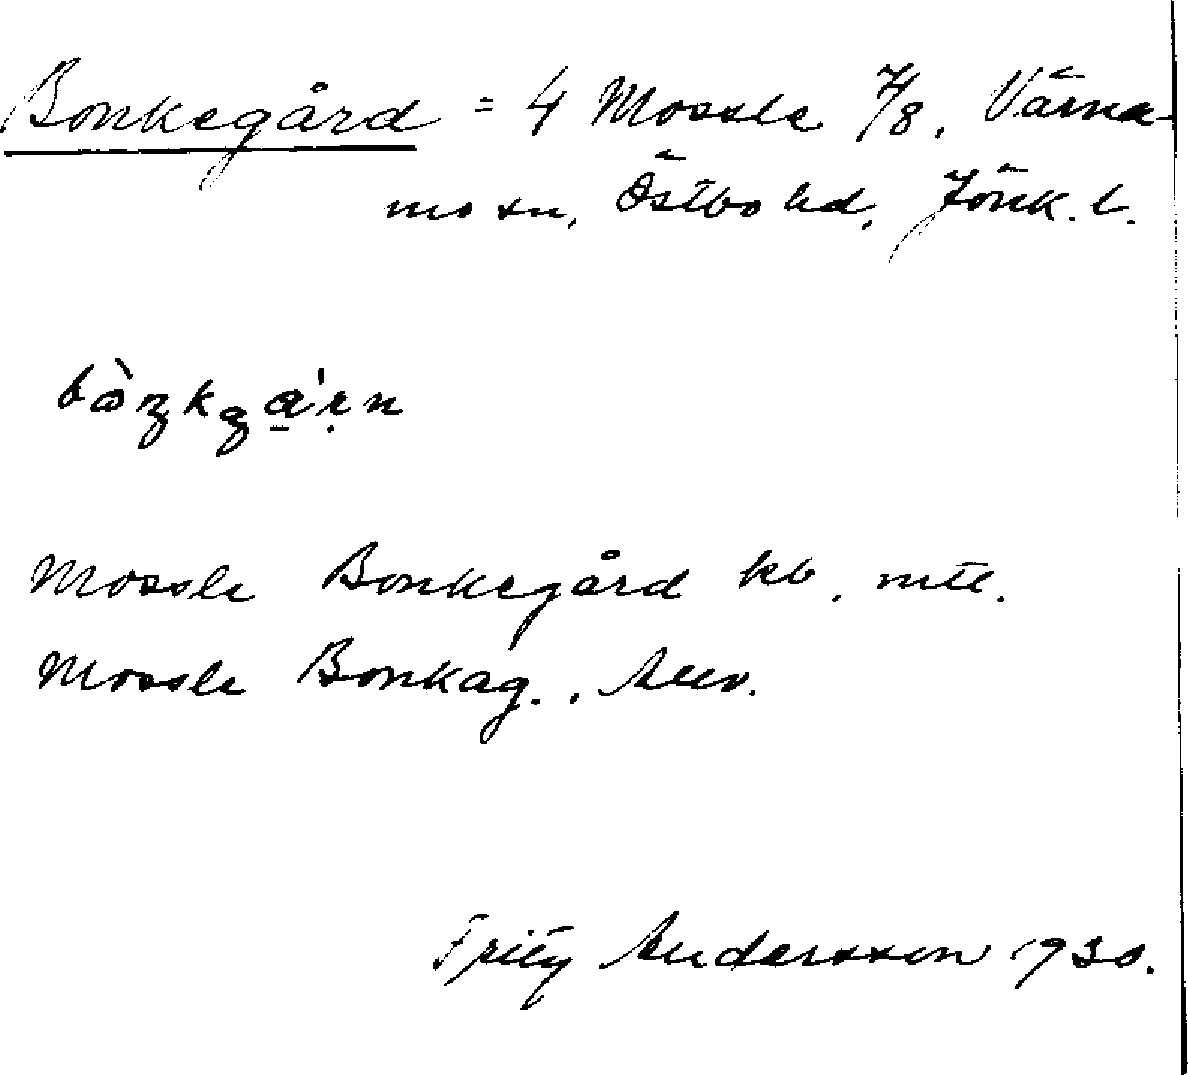 Bonkegård = 4 Mossle 7/8, Värna-
mo sn, Östbo hd, Jönk. l.
Mossle Bonkegård kb, mtl.
Mossle Bonkag.,
Fritz Andersson 1930.